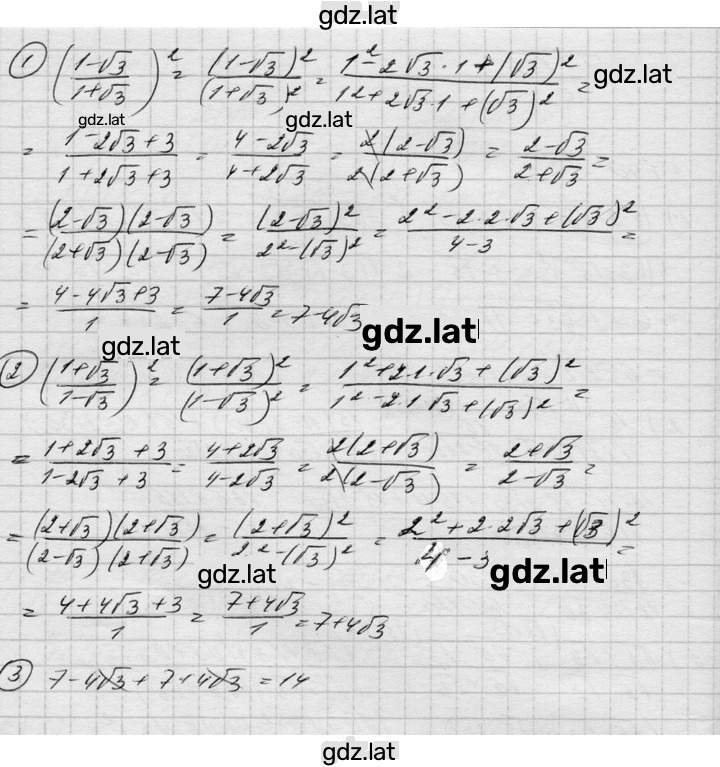 gdz.lat
1 ((1-√3)/(1+√3))² = (1-√3)²/(1+√3)² = (1²-2√3·1+(√3)²)/(1²+2√3·1+(√3)²) = gdz.lat
gdz.lat gdz.lat
= (1-2√3+3)/(1+2√3+3) = (4-2√3)/(4+2√3) = 2(2-√3)/2(2+√3) = (2-√3)/(2+√3) =
= (2-√3)(2-√3)/(2+√3)(2-√3) = (2-√3)²/(2²-(√3)²) = (2²-2·2·√3+(√3)²)/(4-3) =
= (4-4√3+3)/1 = (7-4√3)/1 = 7-4√3 gdz.lat
gdz.lat
2 ((1+√3)/(1-√3))² = (1+√3)²/(1-√3)² = (1²+2·1·√3+(√3)²)/(1²-2·1·√3+(√3)²) =
= (1+2√3+3)/(1-2√3+3) = (4+2√3)/(4-2√3) = 2(2+√3)/2(2-√3) = (2+√3)/(2-√3) =
= (2+√3)(2+√3)/(2-√3)(2+√3) = (2+√3)²/(2²-(√3)²) = (2²+2·2√3+(√3)²)/(4-3) =
gdz.lat gdz.lat
= (4+4√3+3)/1 = (7+4√3)/1 = 7+4√3
3 7-4√3+7+4√3 = 14
gdz.lat